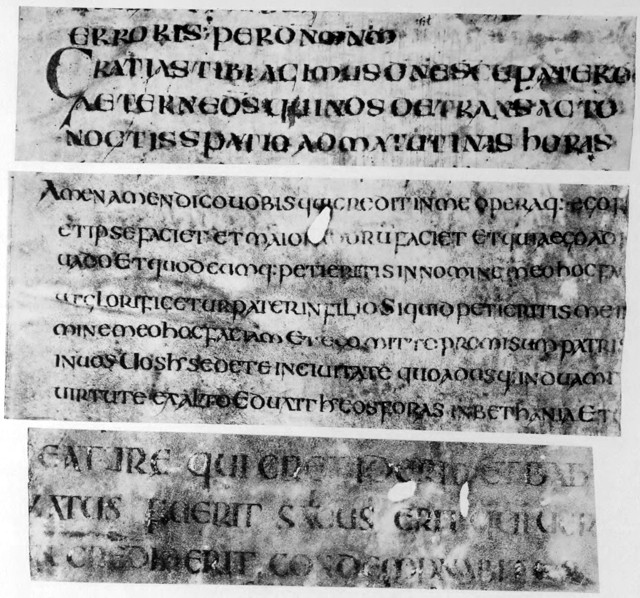 ERRORIS; PER
GRATIAS TIBI AGIMUS DNE SCE PATER O
AETERNE DS QUI NOS DE TRANSACTO
NOCTIS SPATIO AD MATUTINAS HORAS
AMEN AMEN DICO UOBIS QUI CREDIT IN ME OPERA Q: EGO
ET IPSE FACIET ET MAIOR ORU FACIET ET QUIA EGO AD
UADO ET QUODCUMQ: PETIERITIS IN NOMINE MEO HOC FA
UT GLORIFICETUR PATER IN FILIO SI QUID PETIERITIS ME
MINE MEO HOC FACIAM ET EGO MITTO PROMISUM PATRIS
IN UOS UOS h SEDETE IN CIUITATE QUOADUSQ: INDUAMI
UIRTUTE EX ALTO EDUXIT h EOS FORAS IN BETHANIA ET
EATURE QUI ET BAB
ZATUS FUERIT ERIT QUI UER
CREDIDERIT